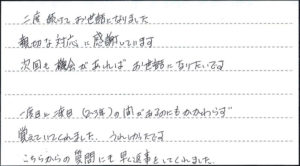 二度続けてお世話になりました
親切な対応に感謝しています
次回も機会があればお世話になりたいです
一度目と二度目(2~3年)の間があるのにもかかわらず
覚えていてくれました。うれしかったです
こちらからの質問にも早く返事をしてくれました。